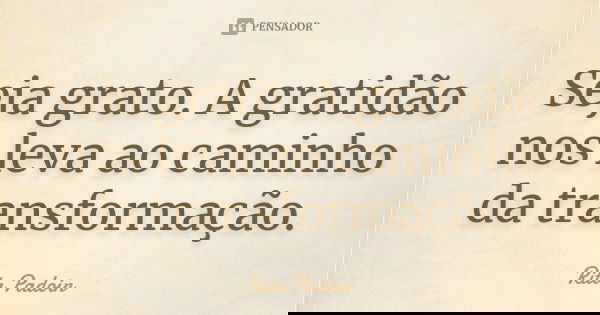 PENSADOR
Seja grato. A gratidão
nos leva ao caminho
da transformação.
Rita Padoin